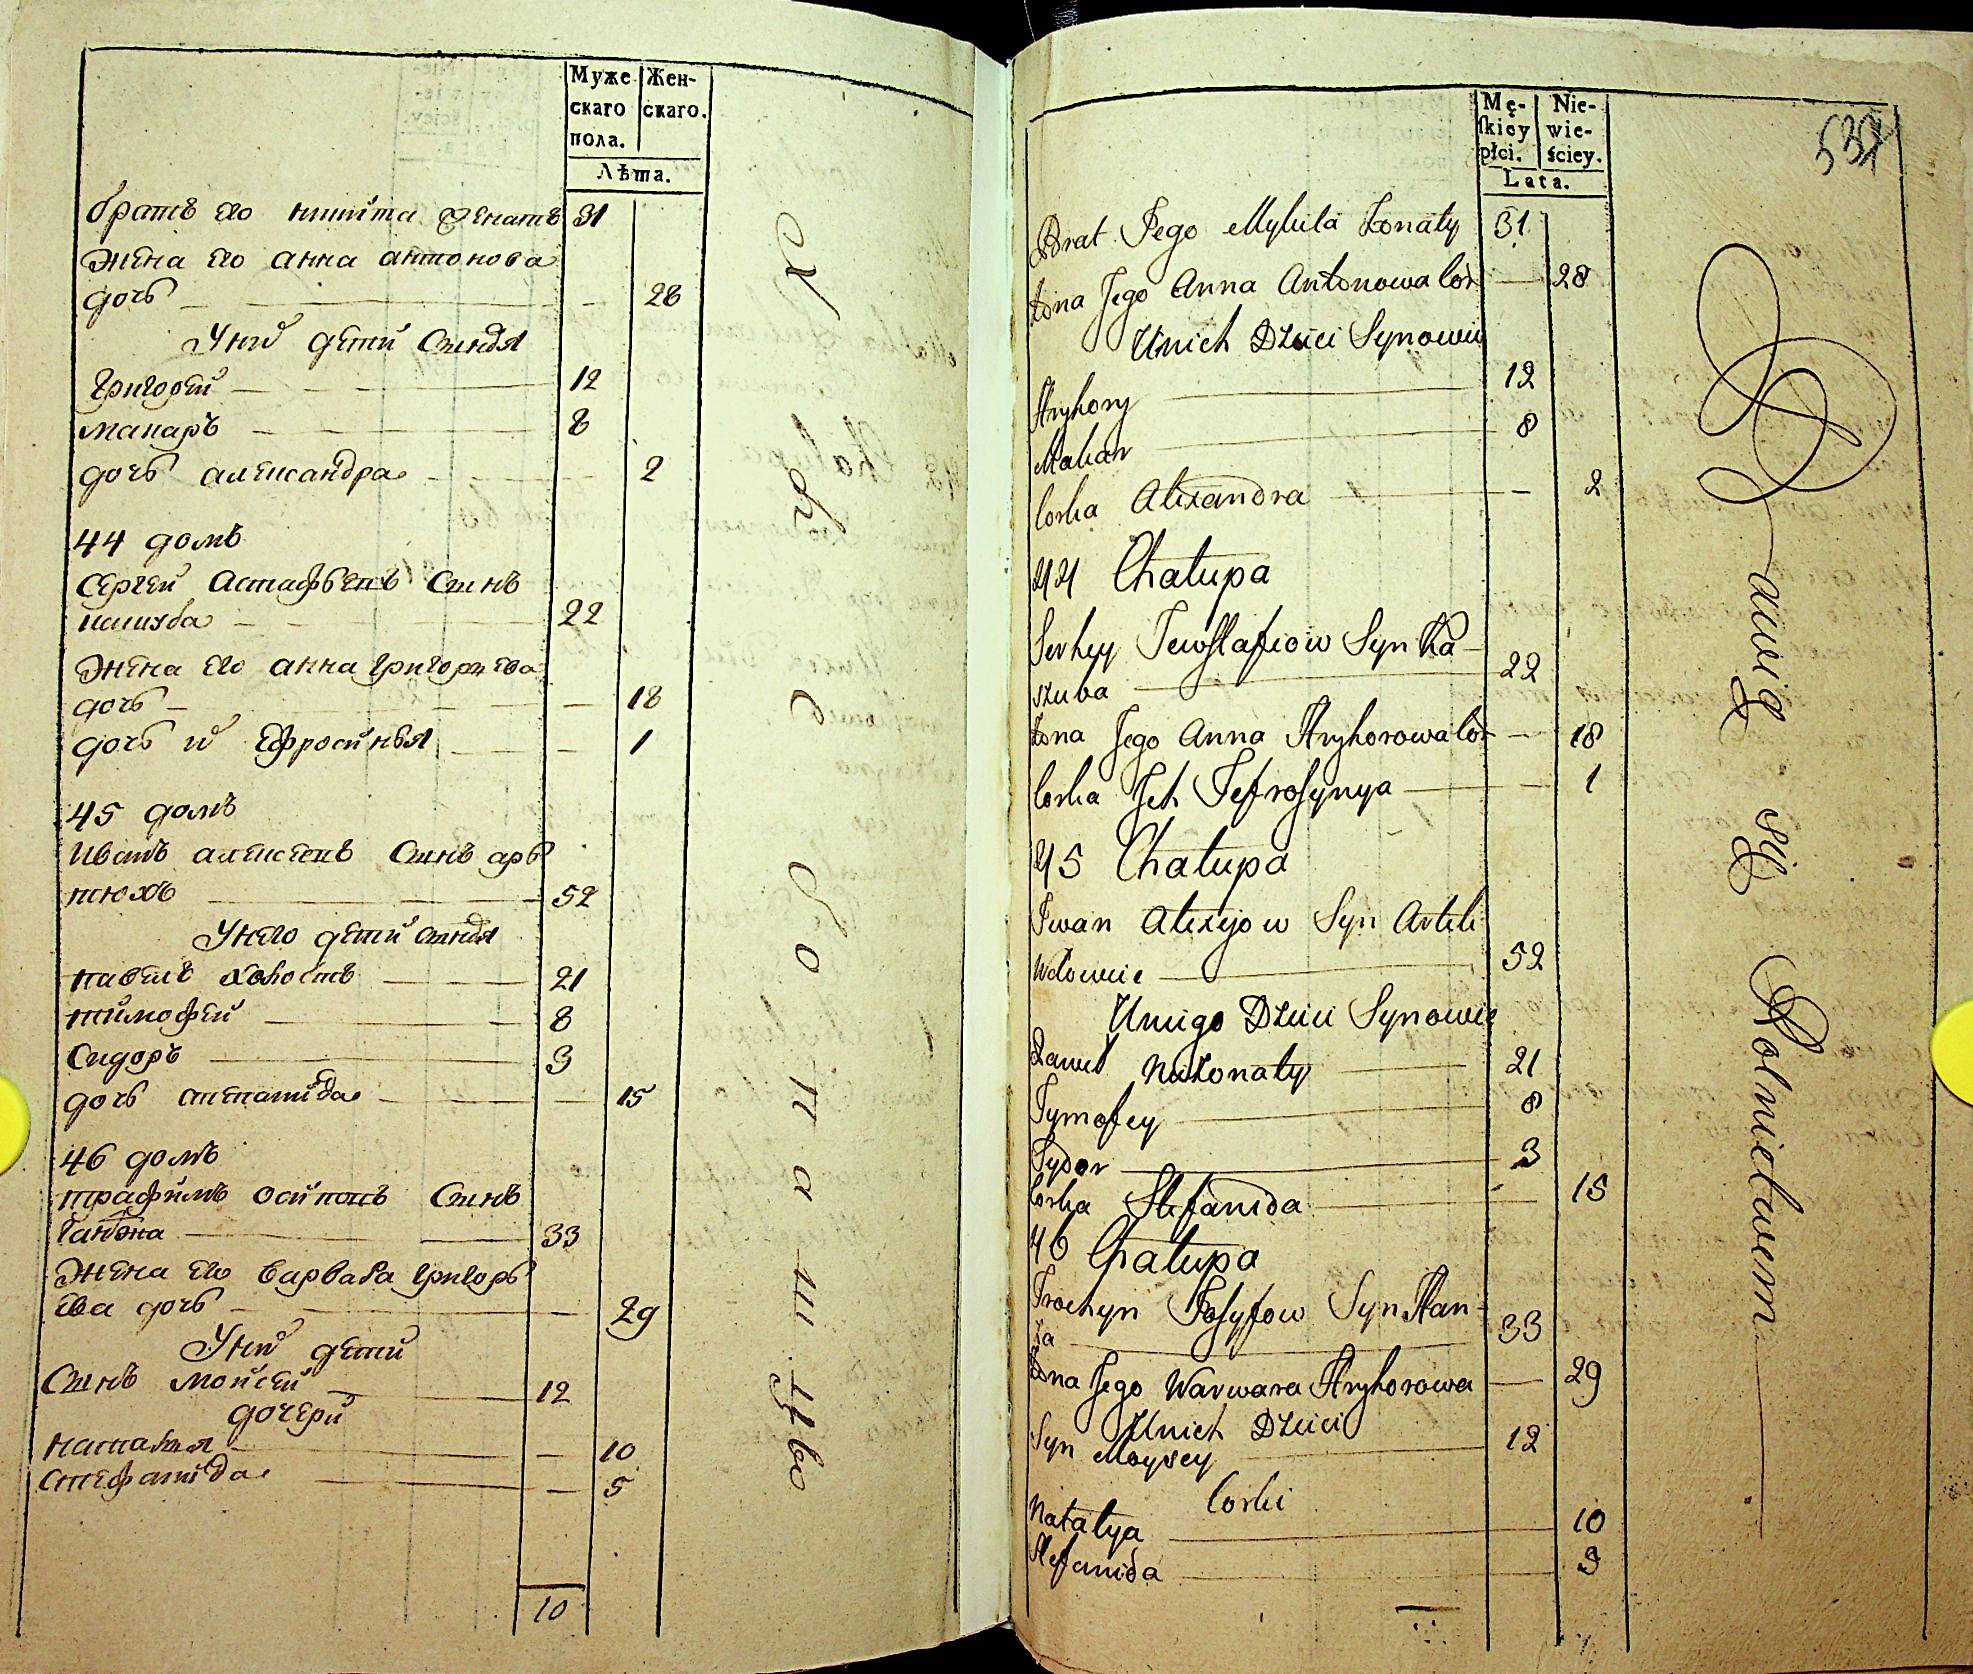 Муже
скаго
пола.
Жен-
скаго.
Лѣта.
братъ его никита женатъ 31
жена его анна антонова
дочь 28
У них дети Сынвя
Григорей 12
макаръ 8
дочь александра 2
44 домъ
Сергей астафьевъ Сынъ
22
жена его анна григорьева
дочь 18
дочь их Ефросинья 1
45 домъ
Иванъ алексеевъ Сынъ арь
тюхъ 52
У него дети сынвя
павелъ холостъ 21
тимофей 8
Сидоръ 3
дочь степанида 15
46 домъ
трафимъ осиповъ Сынъ
Ганжа 33
жена его варвара григорь
ева дочь 29
У них дети
Сынъ мойсей 12
дочери
наталья 10
стефанида 5
10
Х л е б о п а ш ц тво
Mę-
skiey
płci.
Nie-
wie-
ściey.
Lata.
537
Brat Jego Mykita Żonaty 31
Żona Jego Anna Antonowa Cor 28
Unich Dzieci Synowie
Hryhory 12
Makar 8
Corka Alexandra 2
44 Chałupa
Serhey Jewstafiow Syn Ka-
szuba 22
Żona Jego Anna Hryhorowa Cor 18
Corka Jch Jefrosynya 1
45 Chałupa
Iwan Alexijow Syn Artek
Wdowiec 52
Uniego Dzieci Synowie
Paweł Nieżonaty 21
Tymofey 8
Sydor 3
Corka Stefanida 15
46 Chałupa
Trochym Josyfow Syn Han-
ża 33
Żona Jego Warwara Hryhorowa 29
Unich Dzieci
Syn Moysey 12
Corki
Natalya 10
Stefanida 5
Bawią się Rolnictwem